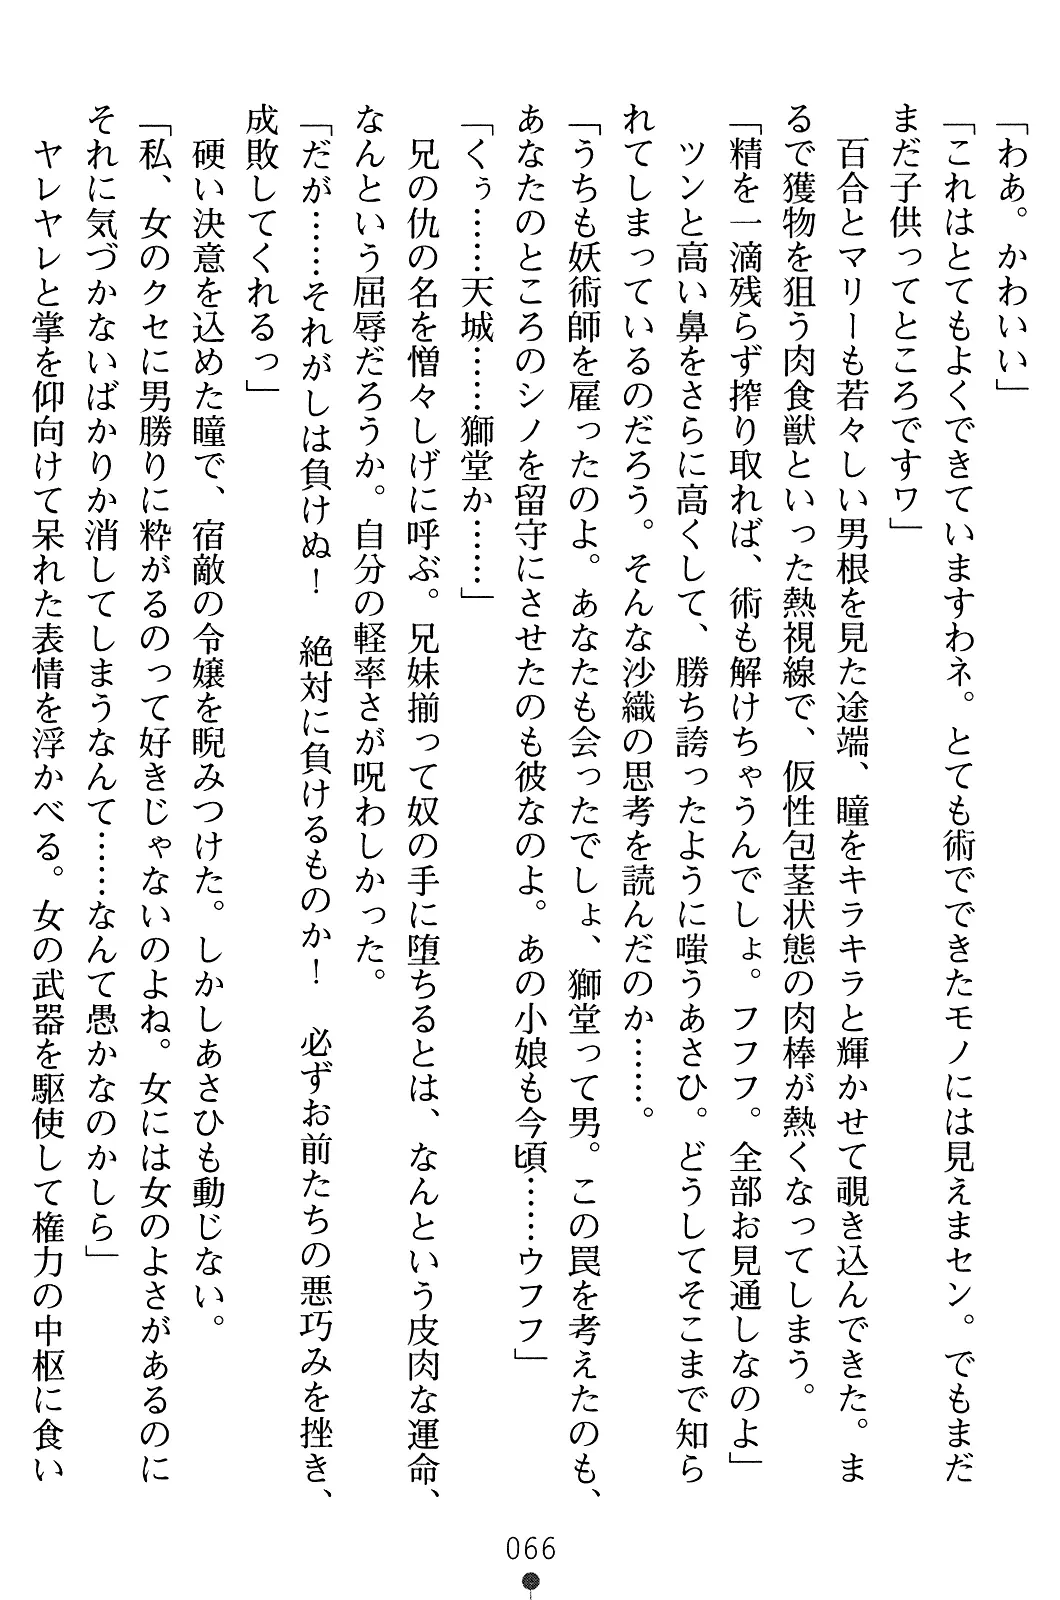 「わあ。かわいい」
「これはとてもよくできていますわネ。とても術でできたモノには見えまセン。でもまだ
まだ子供ってところですワ」
百合とマリーも若々しい男根を見た途端、瞳をキラキラと輝かせて覗き込んできた。ま
るで獲物を狙う肉食獣といった熱視線で、仮性包茎状態の肉棒が熱くなってしまう。
「精を一滴残らず搾り取れば、術も解けちゃうんでしょ。フフフ。全部お見通しなのよ」
ツンと高い鼻をさらに高くして、勝ち誇ったように嗤うあさひ。どうしてそこまで知ら
れてしまっているのだろう。そんな沙織の思考を読んだのか……。
「うちも妖術師を雇ったのよ。あなたも会ったでしょ、獅堂って男。この罠を考えたのも、
あなたのところのシノを留守にさせたのも彼なのよ。あの小娘も今頃……ウフフ」
「くぅ……天城……獅堂か……」
兄の仇の名を憎々しげに呼ぶ。兄妹揃って奴の手に堕ちるとは、なんという皮肉な運命、
なんという屈辱だろうか。自分の軽率さが呪わしかった。
「だが……それがしは負けぬ！　絶対に負けるものか！　必ずお前たちの悪巧みを挫き、
成敗してくれるっ」
硬い決意を込めた瞳で、宿敵の令嬢を睨みつけた。しかしあさひも動じない。
「私、女のクセに男勝りに粋がるのって好きじゃないのよね。女には女のよさがあるのに
それに気づかないばかりか消してしまうなんて……なんて愚かなのかしら」
ヤレヤレと掌を仰向けて呆れた表情を浮かべる。女の武器を駆使して権力の中枢に食い
066